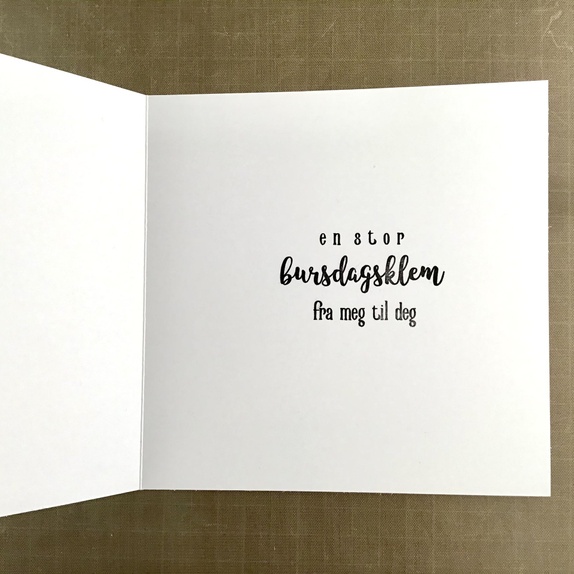 en stor
bursdagsklem
fra meg til deg